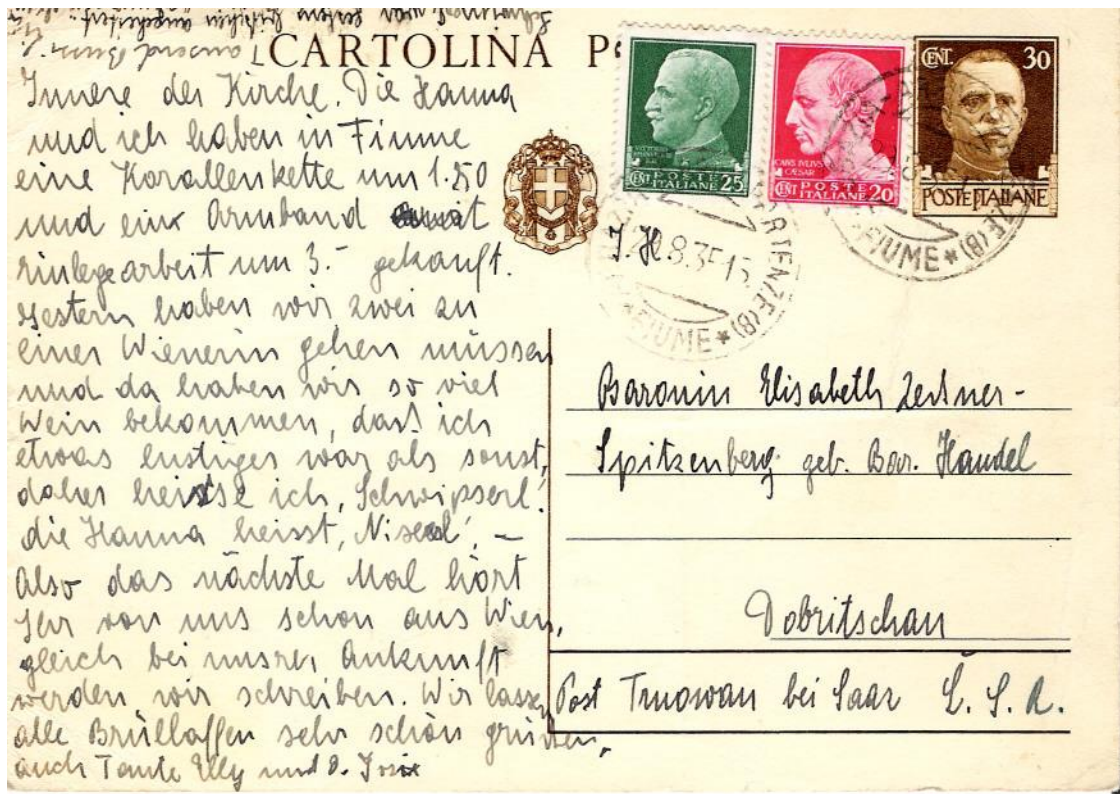 CARTOLINA P
Innere der Kirche. Die Hanna
und ich haben in Fiume
eine Korallenkette um 1.50
und ein Armband mit
einlegearbeit um 3.- gekauft.
Gestern haben wir zwei zu
einer Wienerin gehen müssen
und da haben wir so viel
Wein bekommen, dass ich
etwas lustiger war als sonst,
daher heisse ich, Schwipserl'
die Hanna heisst, –
Also das nächste Mal hört
Ihr von uns schon aus Wien,
gleich bei unsrer Ankunft
werden wir schreiben. Wir lassen
alle Brüllaffen sehr schön grüssen,
auch Tante Elly und O.
VITTORIO
POSTE
ITALIANE
CENT 25
CAIVS IVLIVS
CAESAR
POSTE
ITALIANE
CENT 20
CENT. 30
POSTE ITALIANE
8.35-15
FIUME (8)
FIUME (8)
Baronin Elisabeth Zessner-
Spitzenberg geb. Bar. Handel
Dobritschan
Post Trnowan bei Saaz Č. S. R.